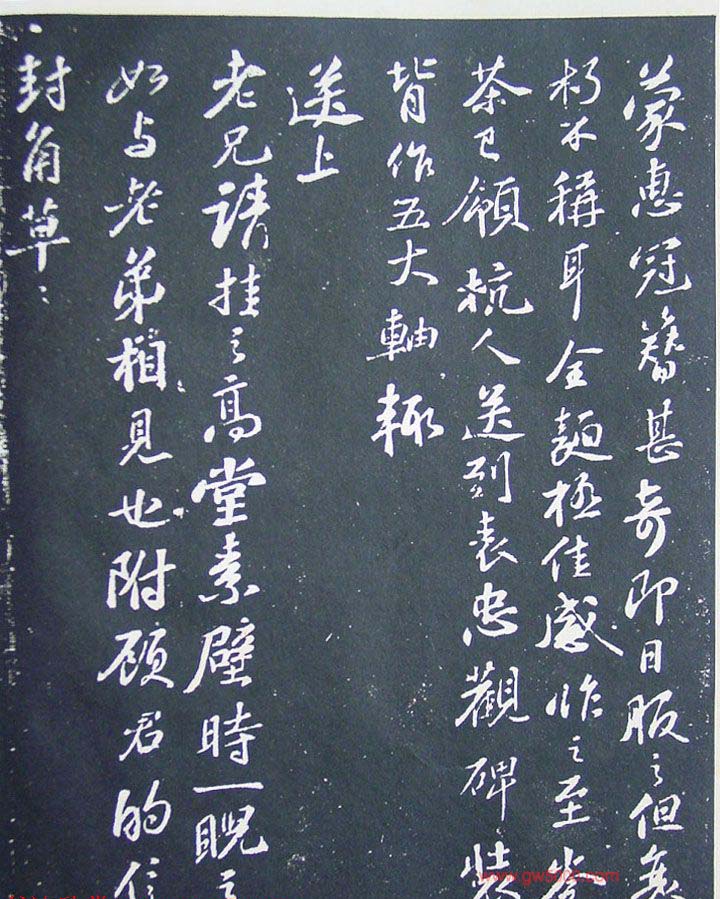 蒙惠冠簪甚奇即日服之但無
朽不稱耳全麵極佳感怍之至
茶已領杭人送到表忠觀碑裝
背作五大軸輒
送上
老兄請挂之高堂素壁時一睨之
如与老弟相見也附顧君的信
封角草〻